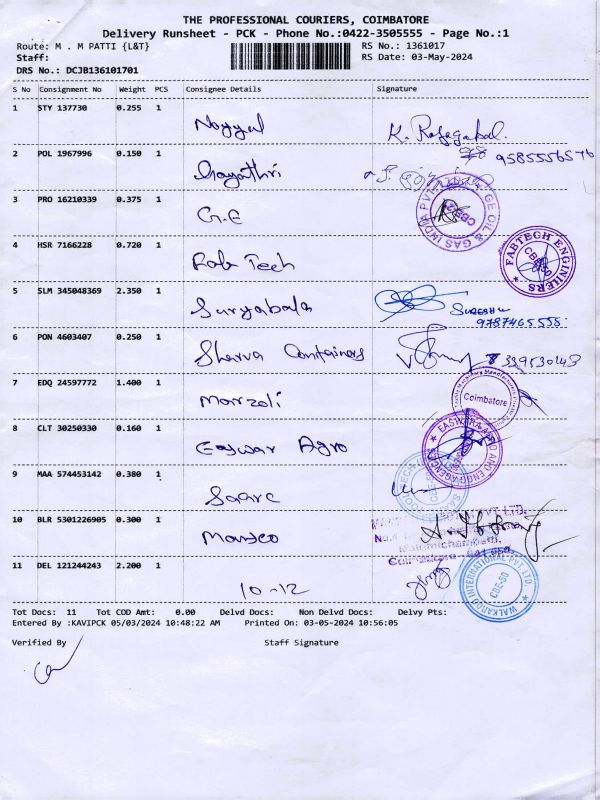 THE PROFESSIONAL COURIERS, COIMBATORE
Delivery Runsheet - PCK - Phone No.:0422-3505555 - Page No.:1
Route: M . M PATTI {L&T} RS No.: 1361017
Staff: RS Date: 03-May-2024
DRS No.: DCJB136101701
S No Consignment No Weight PCS Consignee Details Signature
1 STY 137730 0.255 1 Noyyal K. Rajagopal.
9585556576
2 POL 1967996 0.150 1 Gayathri
3 PRO 16210339 0.375 1 G.E GE OIL & GAS INDIA PVT
4 HSR 7166228 0.720 1 Fab Tech FABTECH ENGINEERS
5 SLM 345048369 2.350 1 Suryabala Suresh
9787465555
6 PON 4603407 0.250 1 Sharva Containers
7 EDQ 24597772 1.400 1 Coimbatore
8 CLT 30250330 0.160 1 Easwar Agro EASWAR AGRO AND ENGG AGENCIES
9 MAA 574453142 0.380 1 Saarc
10 BLR 5301226905 0.300 1
11 DEL 121244243 2.200 1 10-12 WALKAROO INTERNATIONAL PVT. LTD. CBE-50
Tot Docs: 11 Tot COD Amt: 0.00 Delvd Docs: Non Delvd Docs: Delvy Pts:
Entered By :KAVIPCK 05/03/2024 10:48:22 AM Printed On: 03-05-2024 10:56:05
Verified By Staff Signature